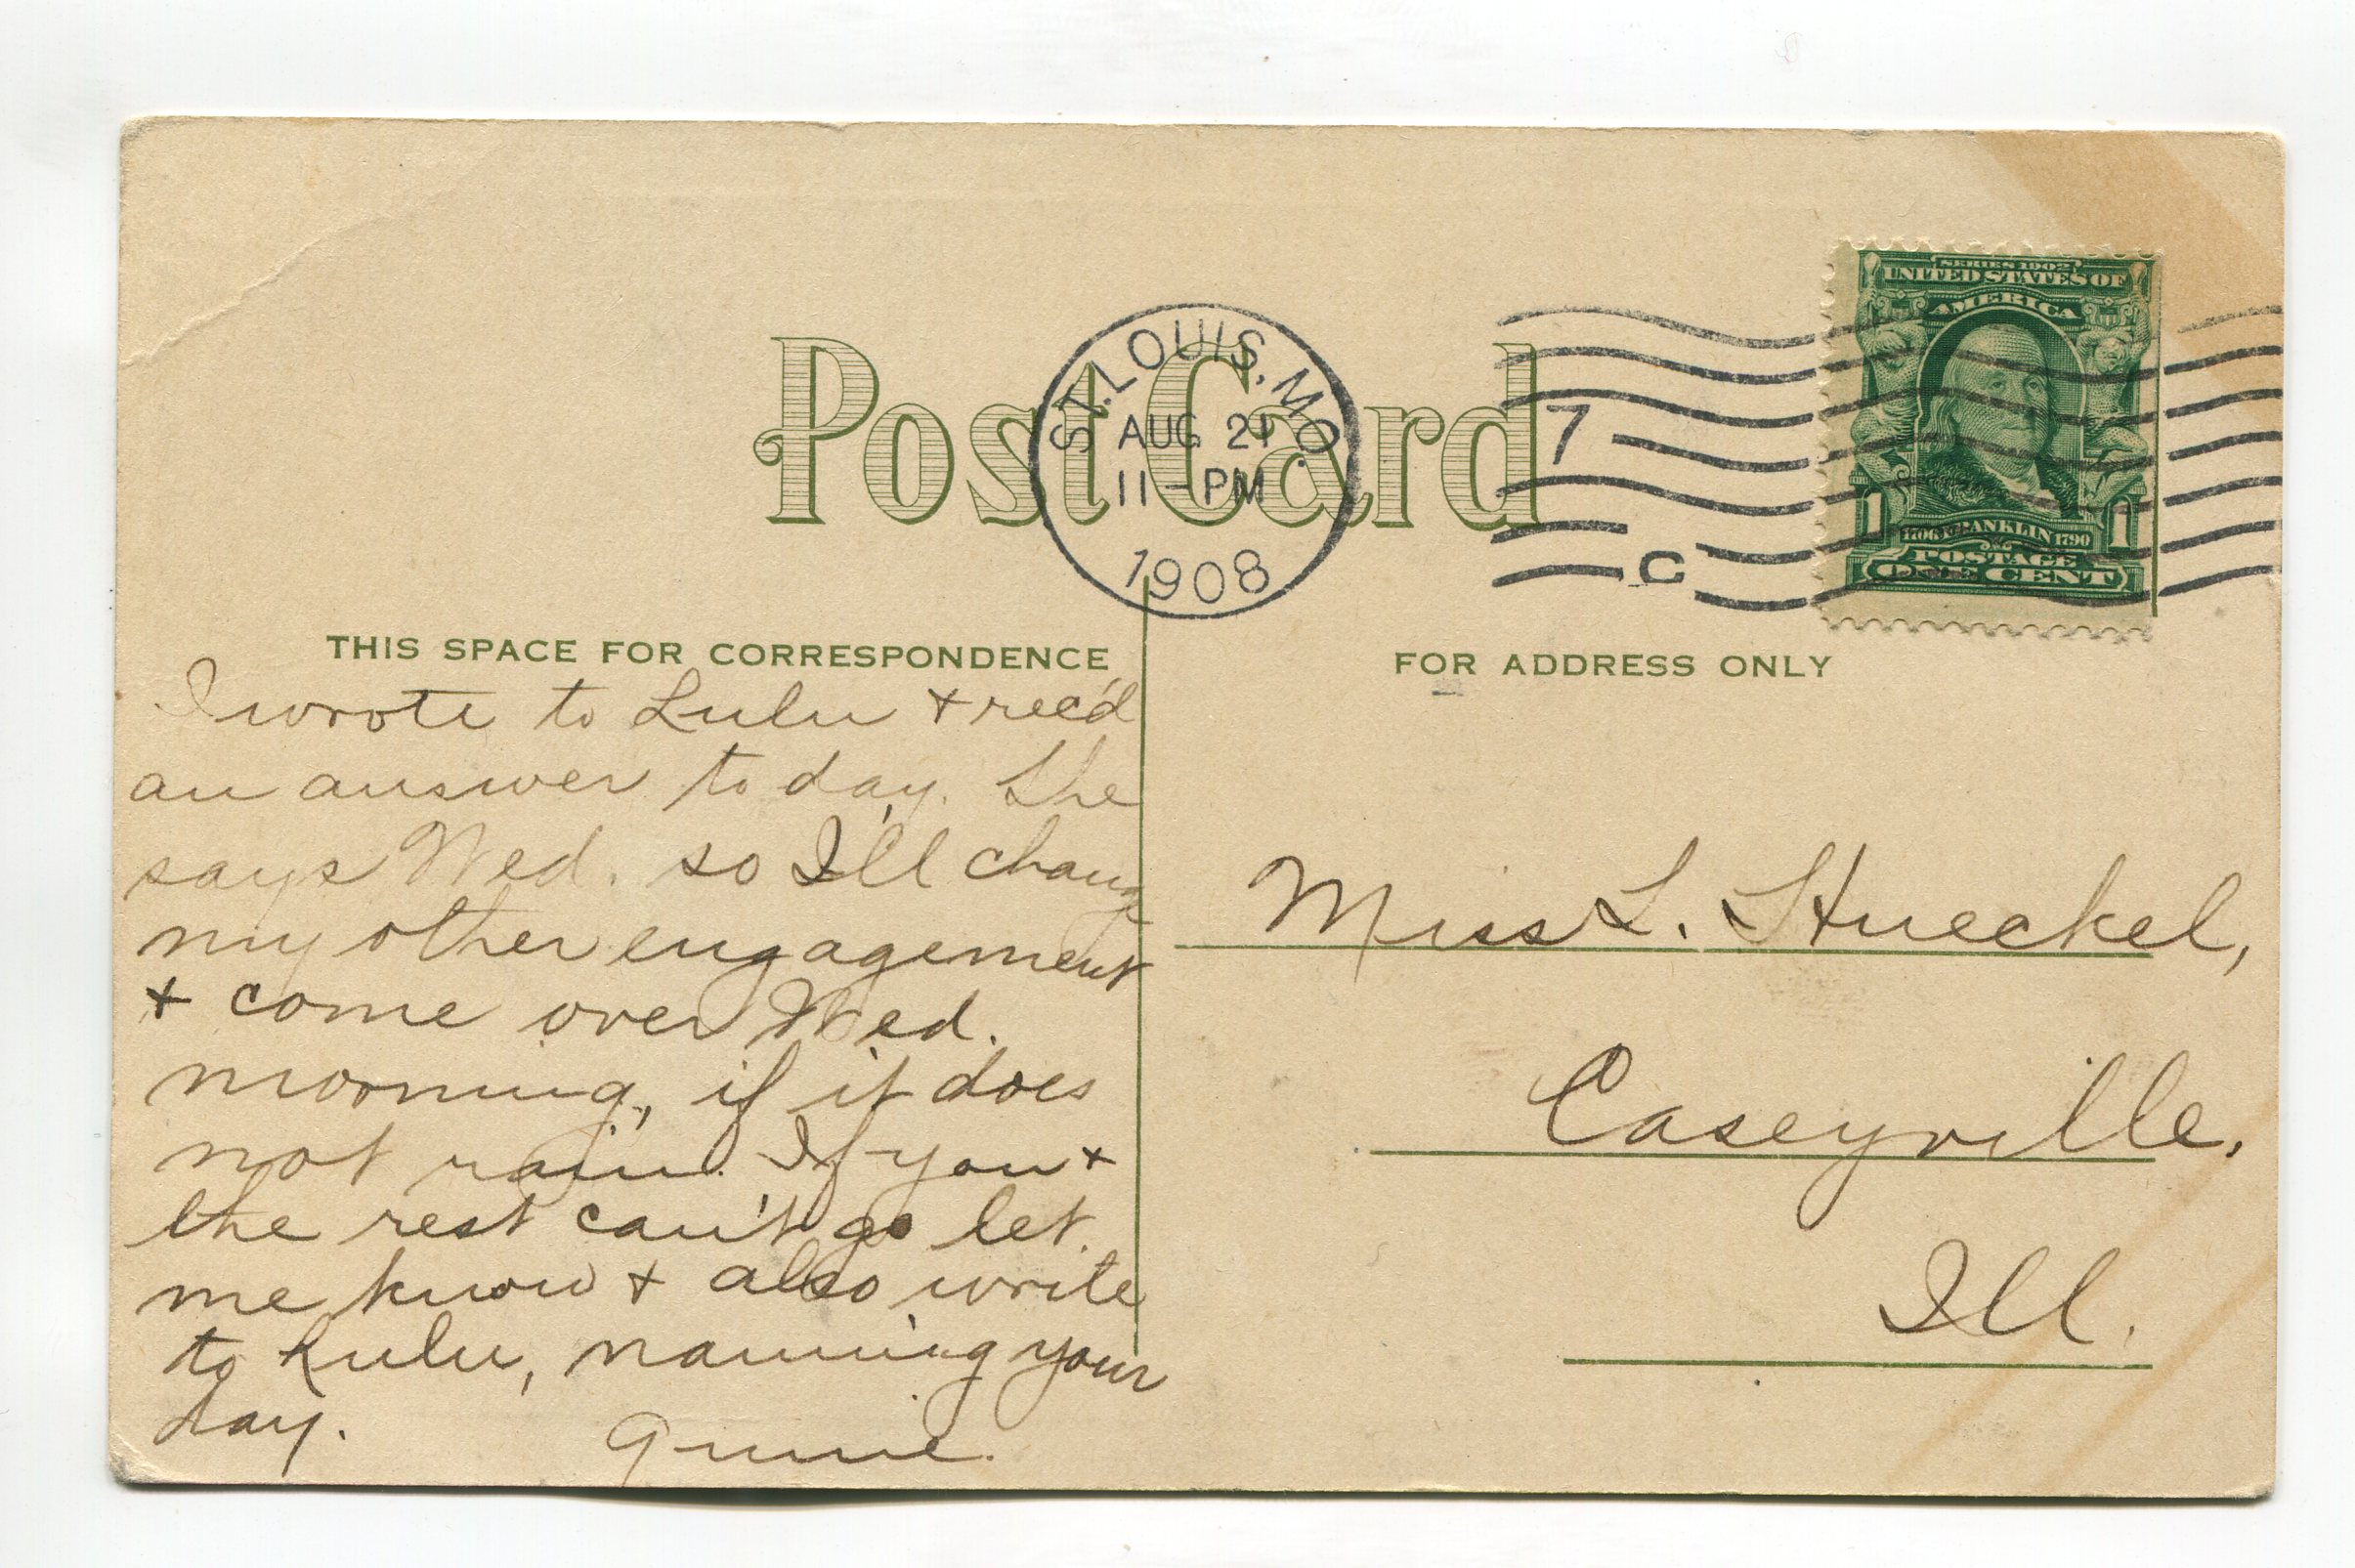 Post Card
ST. LOUIS, MO.
AUG 21
11 - PM
1908
7
C
SERIES 1902
UNITED STATES OF
AMERICA
1706 FRANKLIN 1790
1 1
POSTAGE
ONE CENT
THIS SPACE FOR CORRESPONDENCE
I wrote to Lulu + rec'd
an answer to day. She
says Wed. so I'll chang
my other engagement
+ come over Wed.
morning, if it does
not rain. If you +
the rest can't go let
me know + also write
to Lulu, naming your
day.
FOR ADDRESS ONLY
Miss L. Hueckel,
Caseyville,
Ill.